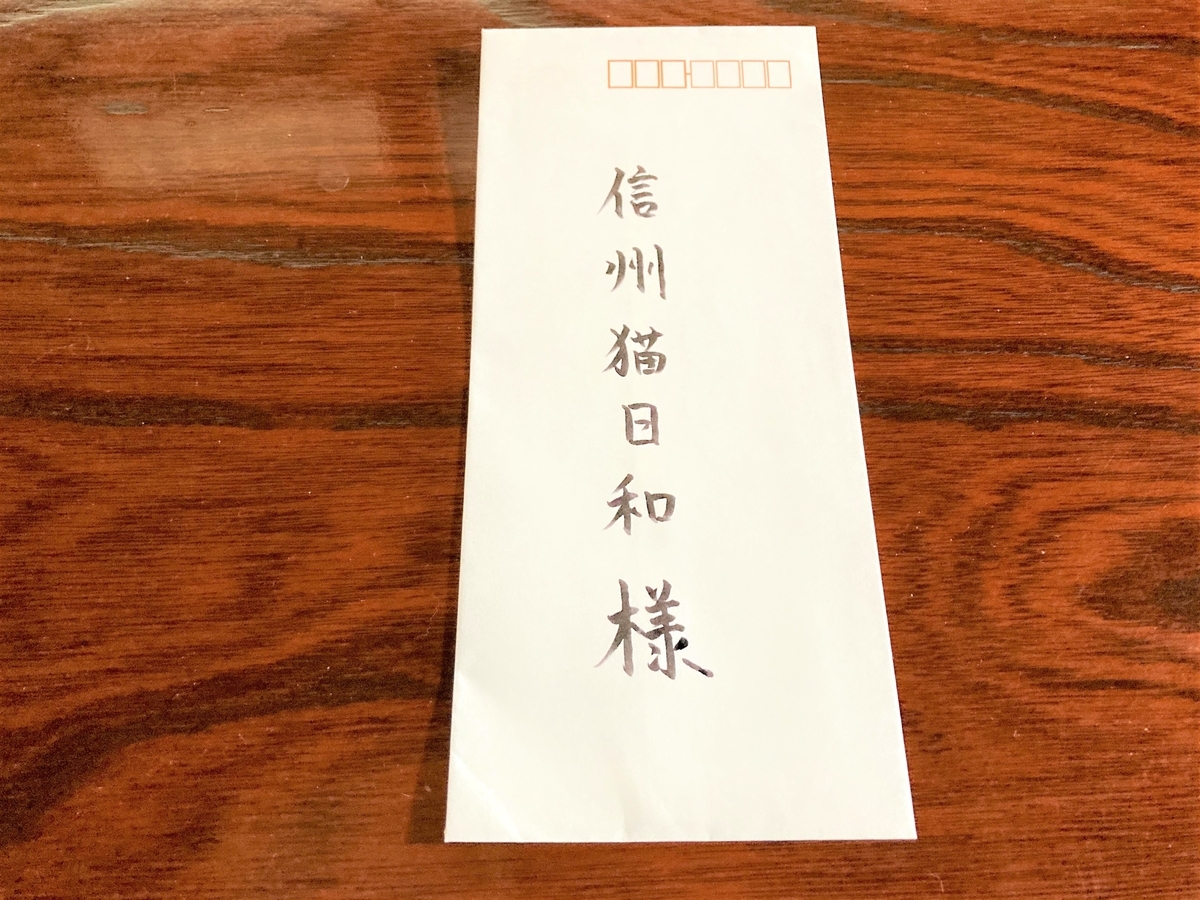 信州猫日和様